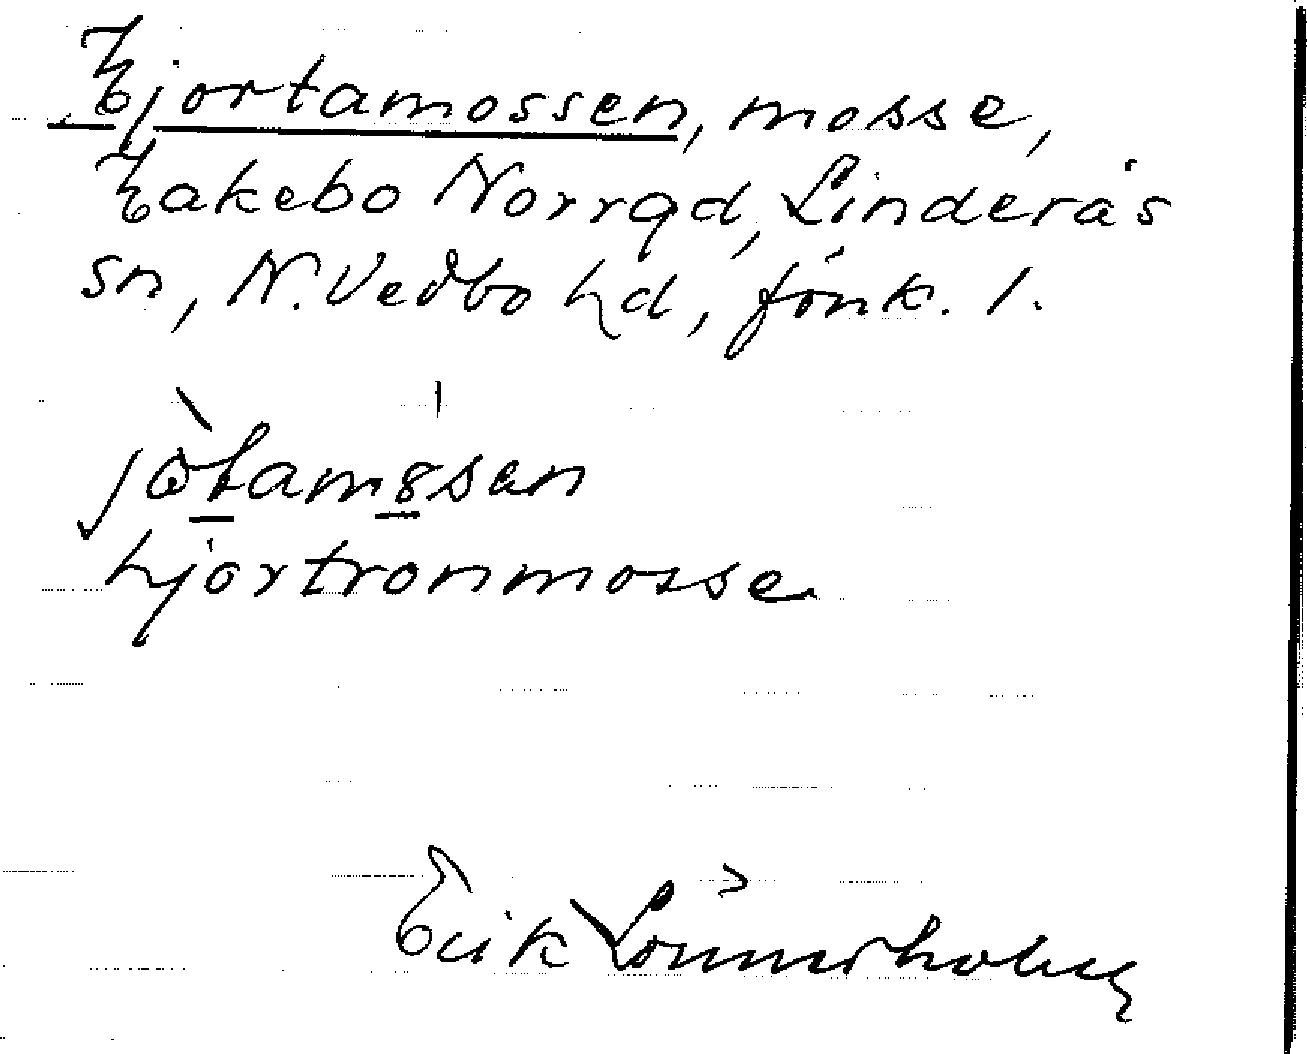 Hjortamossen, mosse,
Hakebo Norrgd, Linderås
sn, N. Vedbo hd, Jönk. l.
hjortronmosse
Erik Lönnerholm